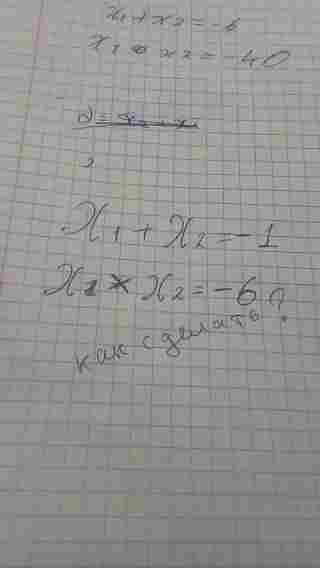 x₁ + x₂ = -6
x₁ * x₂ = -40
2
X₁ + X₂ = -1
X₁ * X₂ = -6?
как сделать